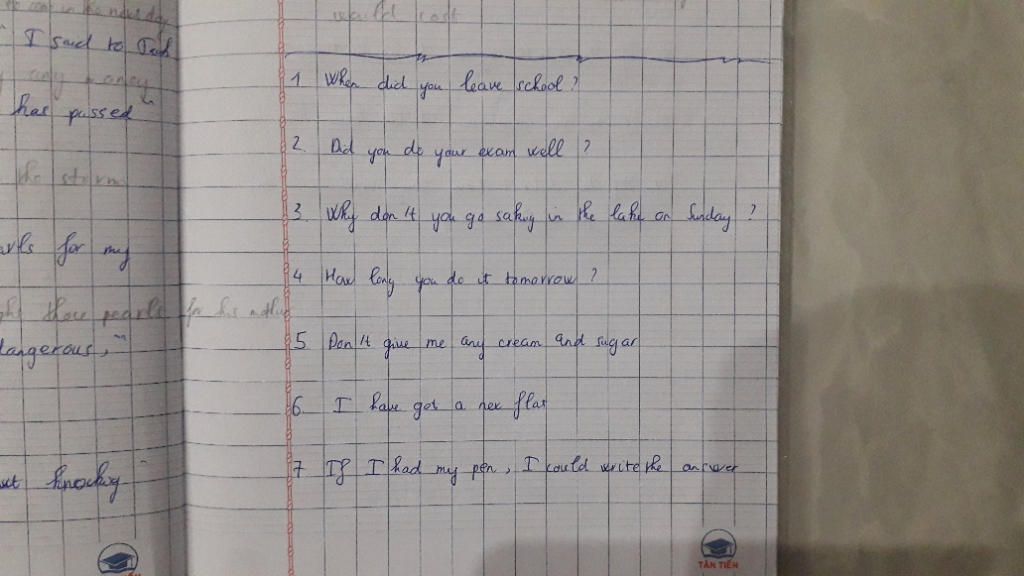 I said to
any money
has passed"
the storm
for my
those pearls for his mother
dangerous,"
knocking
would cost
1 When did you leave school?
2. Did you do your exam well?
3. Why don't you go saling in the lake on Sunday?
4 How long you do it tomorrow?
5 Don't give me any cream and sugar
6 I have got a new flat
7 If I had my pen, I could write the answer
TÂN TIẾN